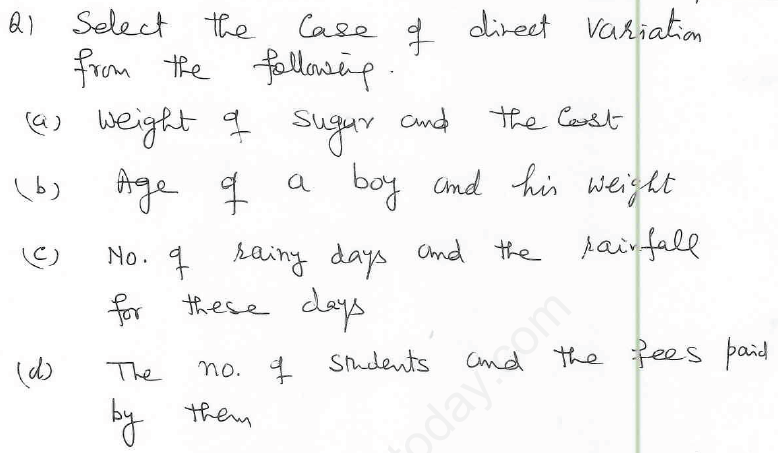 Q1 Select the Case of direct variation
from the following.
(a) Weight of Sugur and the Cost
(b) Age of a boy and his weight
(c) No. of rainy days and the rainfall
for these days
(d) The no. of students and the fees paid
by them
today.com